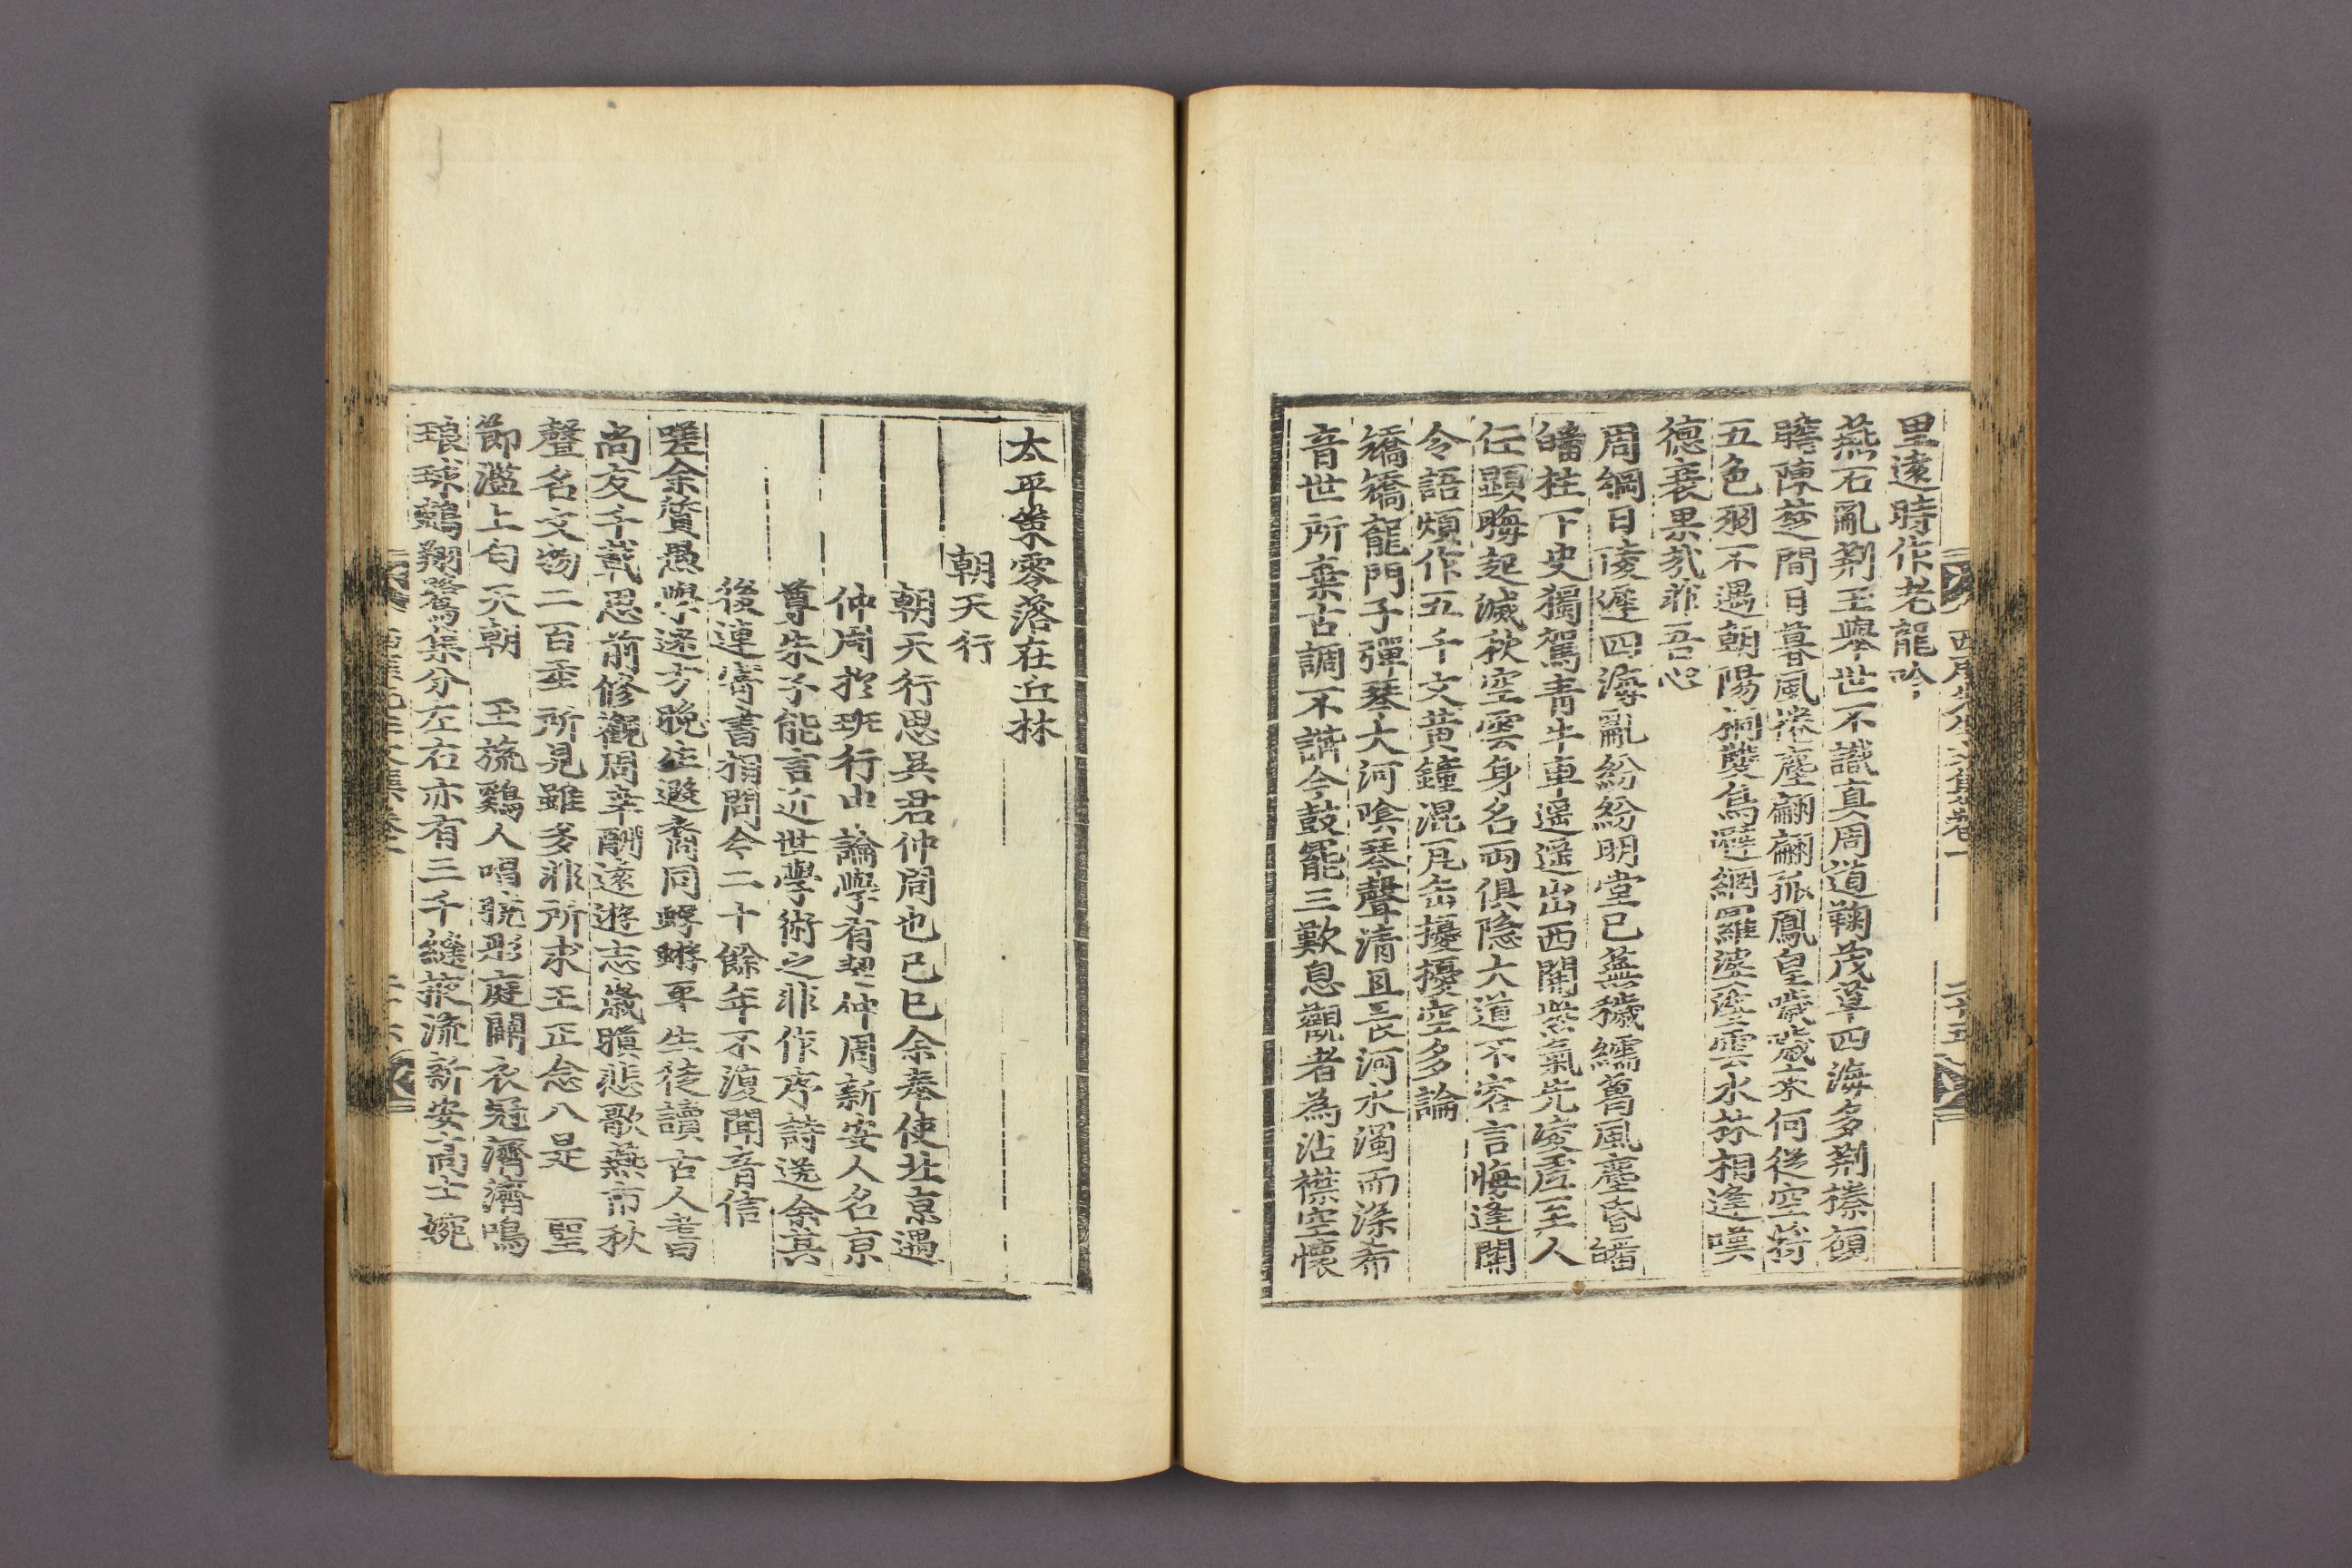 西厓先生文集卷一
二十五
里遠時作老龍吟
燕石亂荊玉舉世不識真周道鞠茂草四海多荊榛
聘陳楚間日暮風捲塵翩翩孤鳳皇噦噦來何從空
五色羽不遇朝陽桐雙鳥避網羅婆娑雲水林相逢嘆
德衰果哉非吾心
周綱日凌遲四海亂紛紛明堂已蕪穢繻葛風塵昏皤
皤柱下史獨駕青牛車遥遥出西關紫氣先凌虛至人
任顯晦起滅秋空雲身名兩俱隱大道不容言悔逢關
令語煩作五千文黄鐘混瓦缶擾擾空多論
矯矯龍門子彈琴大河陰琴聲清且長河水濁而深希
音世所棄古調不諧今鼓罷三歎息觀者為沾襟空懷
太平策零落在丘林
朝天行
朝天行思吳君仲周也己巳余奉使北京遇
仲周於班行中論學有契仲周新安人名京
尊朱子能言近世學術之非作序詩送余其
後連寄書相問今二十餘年不復聞音信
嗟余質愚學迷方晚生遐裔同蜉蝣平生徒讀古人書
尚友千載思前修觀周幸酬遠遊志歲暮悲歌燕市秋
聲名文物二百年所見雖多非所求王正念八是　聖
節濫上句天朝　玉旒鷄人唱曉彤庭闢衣冠濟濟鳴
琅球鵷翔鷺集分左右亦有三千縫掖流新安高士婉